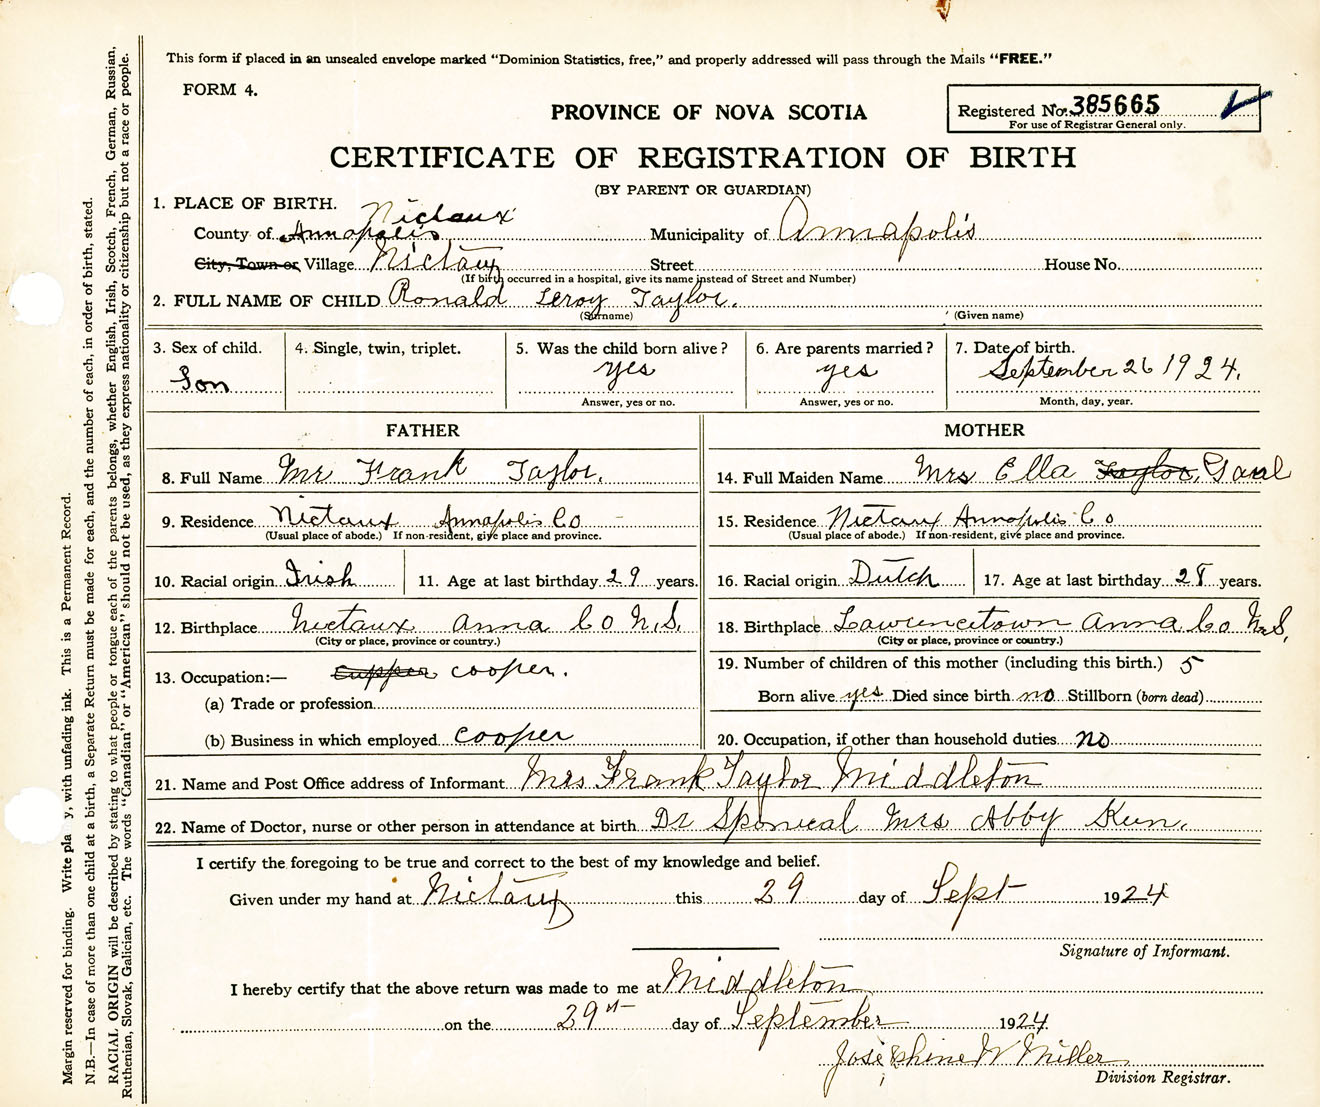 This form if placed in an unsealed envelope marked "Dominion Statistics, free," and properly addressed will pass through the Mails "FREE."
FORM 4.
PROVINCE OF NOVA SCOTIA
Registered No. 385665
For use of Registrar General only.
CERTIFICATE OF REGISTRATION OF BIRTH
(BY PARENT OR GUARDIAN)
1. PLACE OF BIRTH. Nictaux
County of Annapolis Municipality of Annapolis
City, Town or Village Nictaux Street House No.
(If birth occurred in a hospital, give its name instead of Street and Number)
2. FULL NAME OF CHILD Ronald Leroy Taylor.
(Surname) (Given name)
3. Sex of child. 4. Single, twin, triplet. 5. Was the child born alive? 6. Are parents married? 7. Date of birth.
Son yes yes September 26 1924.
Answer, yes or no. Answer, yes or no. Month, day, year.
FATHER MOTHER
8. Full Name Mr Frank Taylor. 14. Full Maiden Name Mrs Ella Taylor,
9. Residence Nictaux Annapolis Co 15. Residence Nictaux Annapolis Co
(Usual place of abode.) If non-resident, give place and province. (Usual place of abode.) If non-resident, give place and province.
10. Racial origin Irish 11. Age at last birthday 29 years. 16. Racial origin Dutch 17. Age at last birthday 28 years.
12. Birthplace Nictaux Anna Co N.S. 18. Birthplace Lawrencetown Anna. Co N.S.
(City or place, province or country.) (City or place, province or country.)
13. Occupation:— cooper. 19. Number of children of this mother (including this birth.) 5
(a) Trade or profession Born alive yes Died since birth no Stillborn (born dead)
(b) Business in which employed cooper 20. Occupation, if other than household duties no
21. Name and Post Office address of Informant Mrs Frank Taylor Middleton
22. Name of Doctor, nurse or other person in attendance at birth Dr Mrs Abby
I certify the foregoing to be true and correct to the best of my knowledge and belief.
Given under my hand at Nictaux this 29 day of Sept 1924
Signature of Informant.
I hereby certify that the above return was made to me at Middleton
on the 29 day of September 1924
Josephine W Miller
Division Registrar.
Margin reserved for binding. Write pla y, with unfading ink. This is a Permanent Record.
N.B.—In case of more than one child at a birth, a Separate Return must be made for each, and the number of each, in order of birth, stated.
RACIAL ORIGIN will be described by stating to what people or tongue each of the parents belongs, whether English, Irish, Scotch, French, German, Russian,
Ruthenian, Slovak, Galician, etc. The words "Canadian" or "American" should not be used, as they express nationality or citizenship but not a race or people.